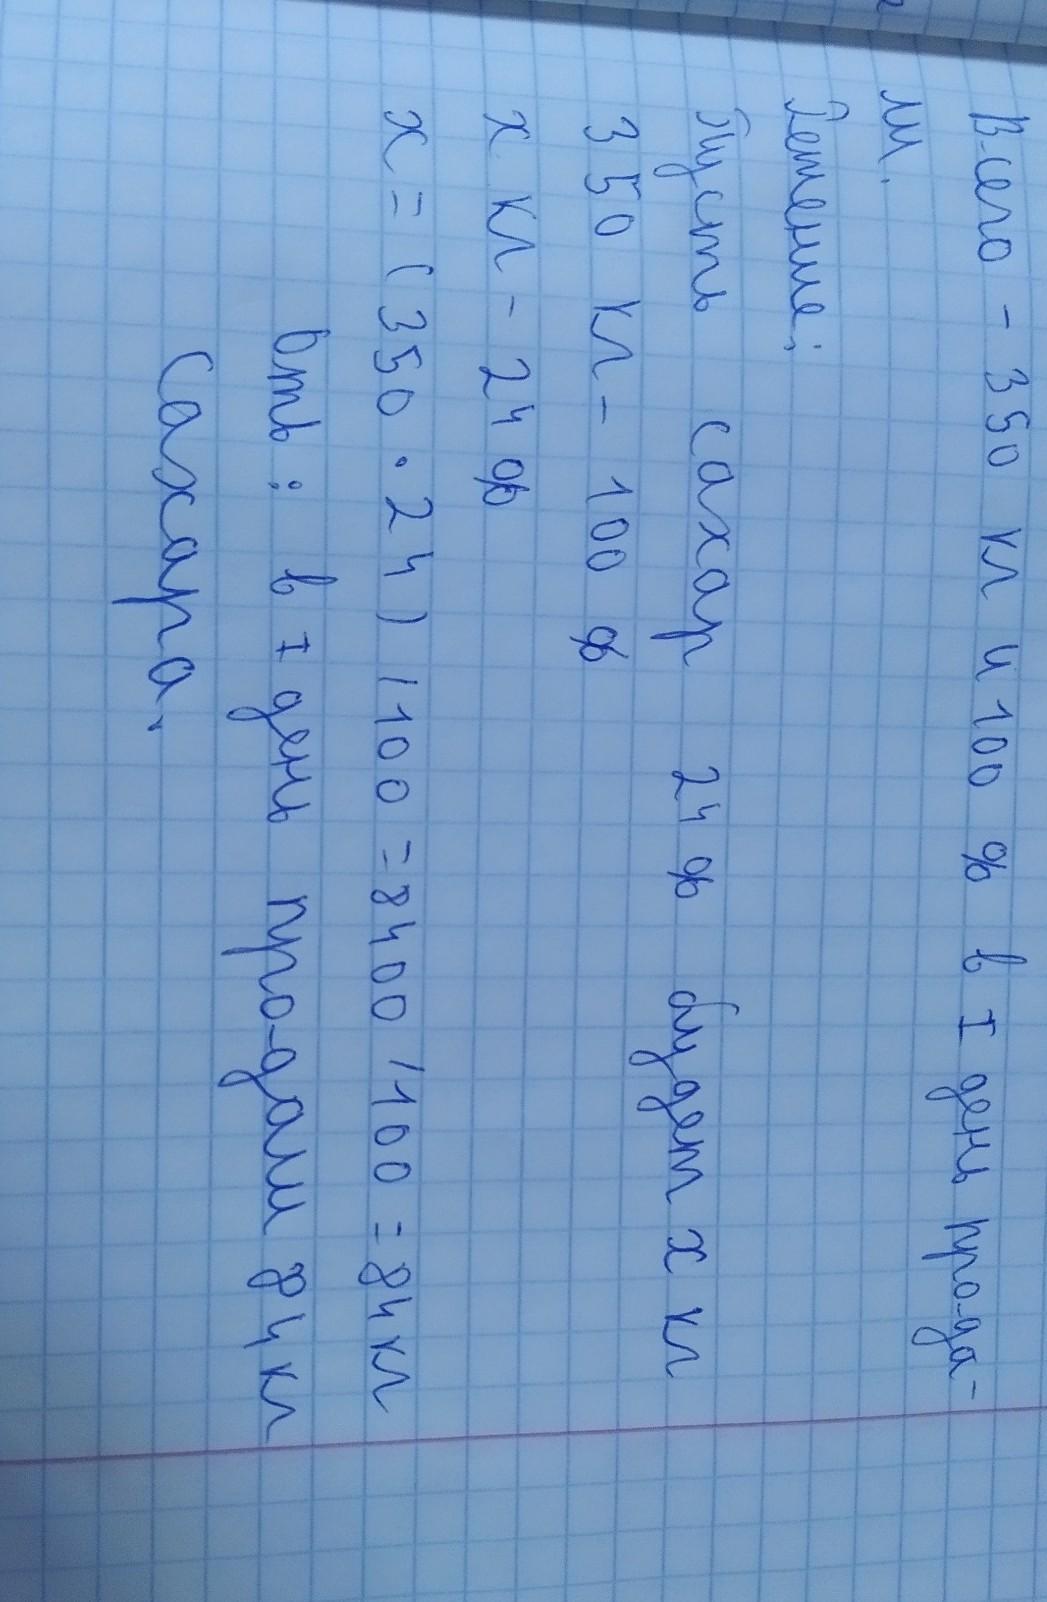 Всего - 350 кг и 100 % в I день прода-
ли.
Решение;
Пусть сахар 24 % будет х кг
350 кг - 100 %
х кг - 24 %
х = (350 · 24) / 100 = 8400 / 100 = 84 кг
Отв : в I день продали 84 кг
Сахара.